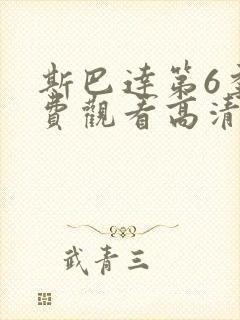 斯巴達第6
費觀看高清
武青三